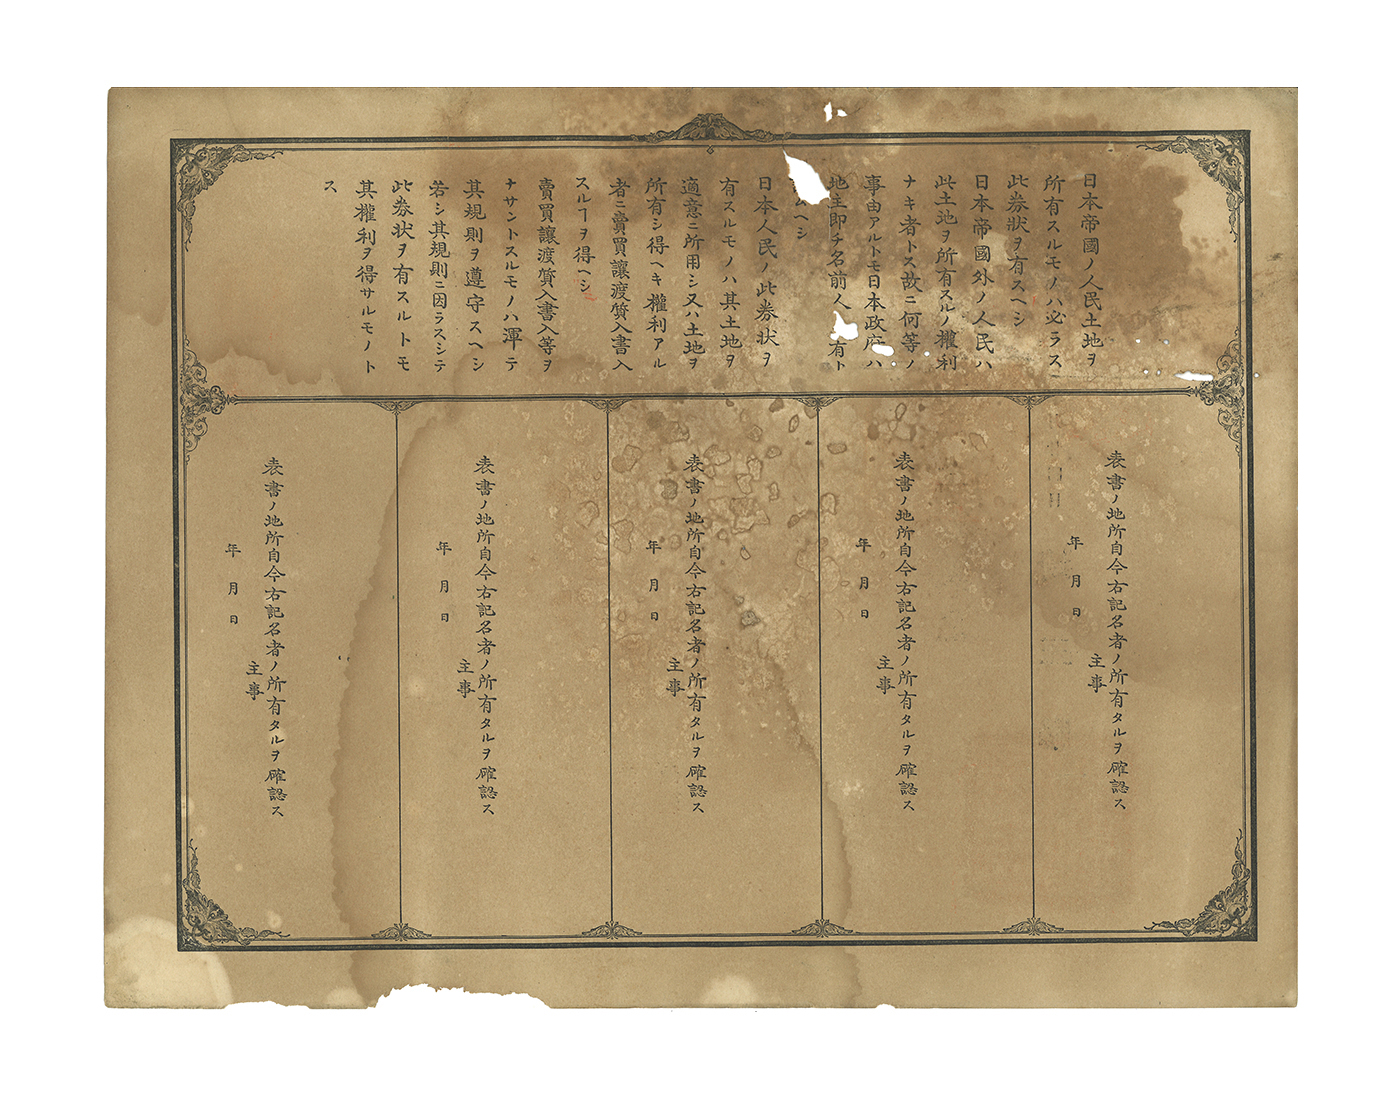 日本帝國ノ人民土地ヲ
所有スルモノハ必ラス
此券狀ヲ有スヘシ
日本帝國外ノ人民ハ
此土地ヲ所有スルノ權利
ナキ者トス故ニ何等ノ
事由アルトモ日本政府ハ
地主即チ名前人 有ト
ムヘシ
日本人民ノ此券狀ヲ
有スルモノハ其土地ヲ
適意ニ所用シ又ハ土地ヲ
所有シ得ヘキ權利アル
者ニ賣買讓渡質入書入
スルヿヲ得ヘシ
賣買讓渡質入書入等ヲ
ナサントスルモノハ渾テ
其規則ヲ遵守スヘシ
若シ其規則ニ因ラスシテ
此券状ヲ有スルトモ
其權利ヲ得サルモノト
ス
表書ノ地所自今右記名者ノ所有タルヲ確認ス
年月日
主事
表書ノ地所自今右記名者ノ所有タルヲ確認ス
年月日
主事
表書ノ地所自今右記名者ノ所有タルヲ確認ス
年月日
主事
表書ノ地所自今右記名者ノ所有タルヲ確認ス
年月日
主事
表書ノ地所自今右記名者ノ所有タルヲ確認ス
年月日
主事